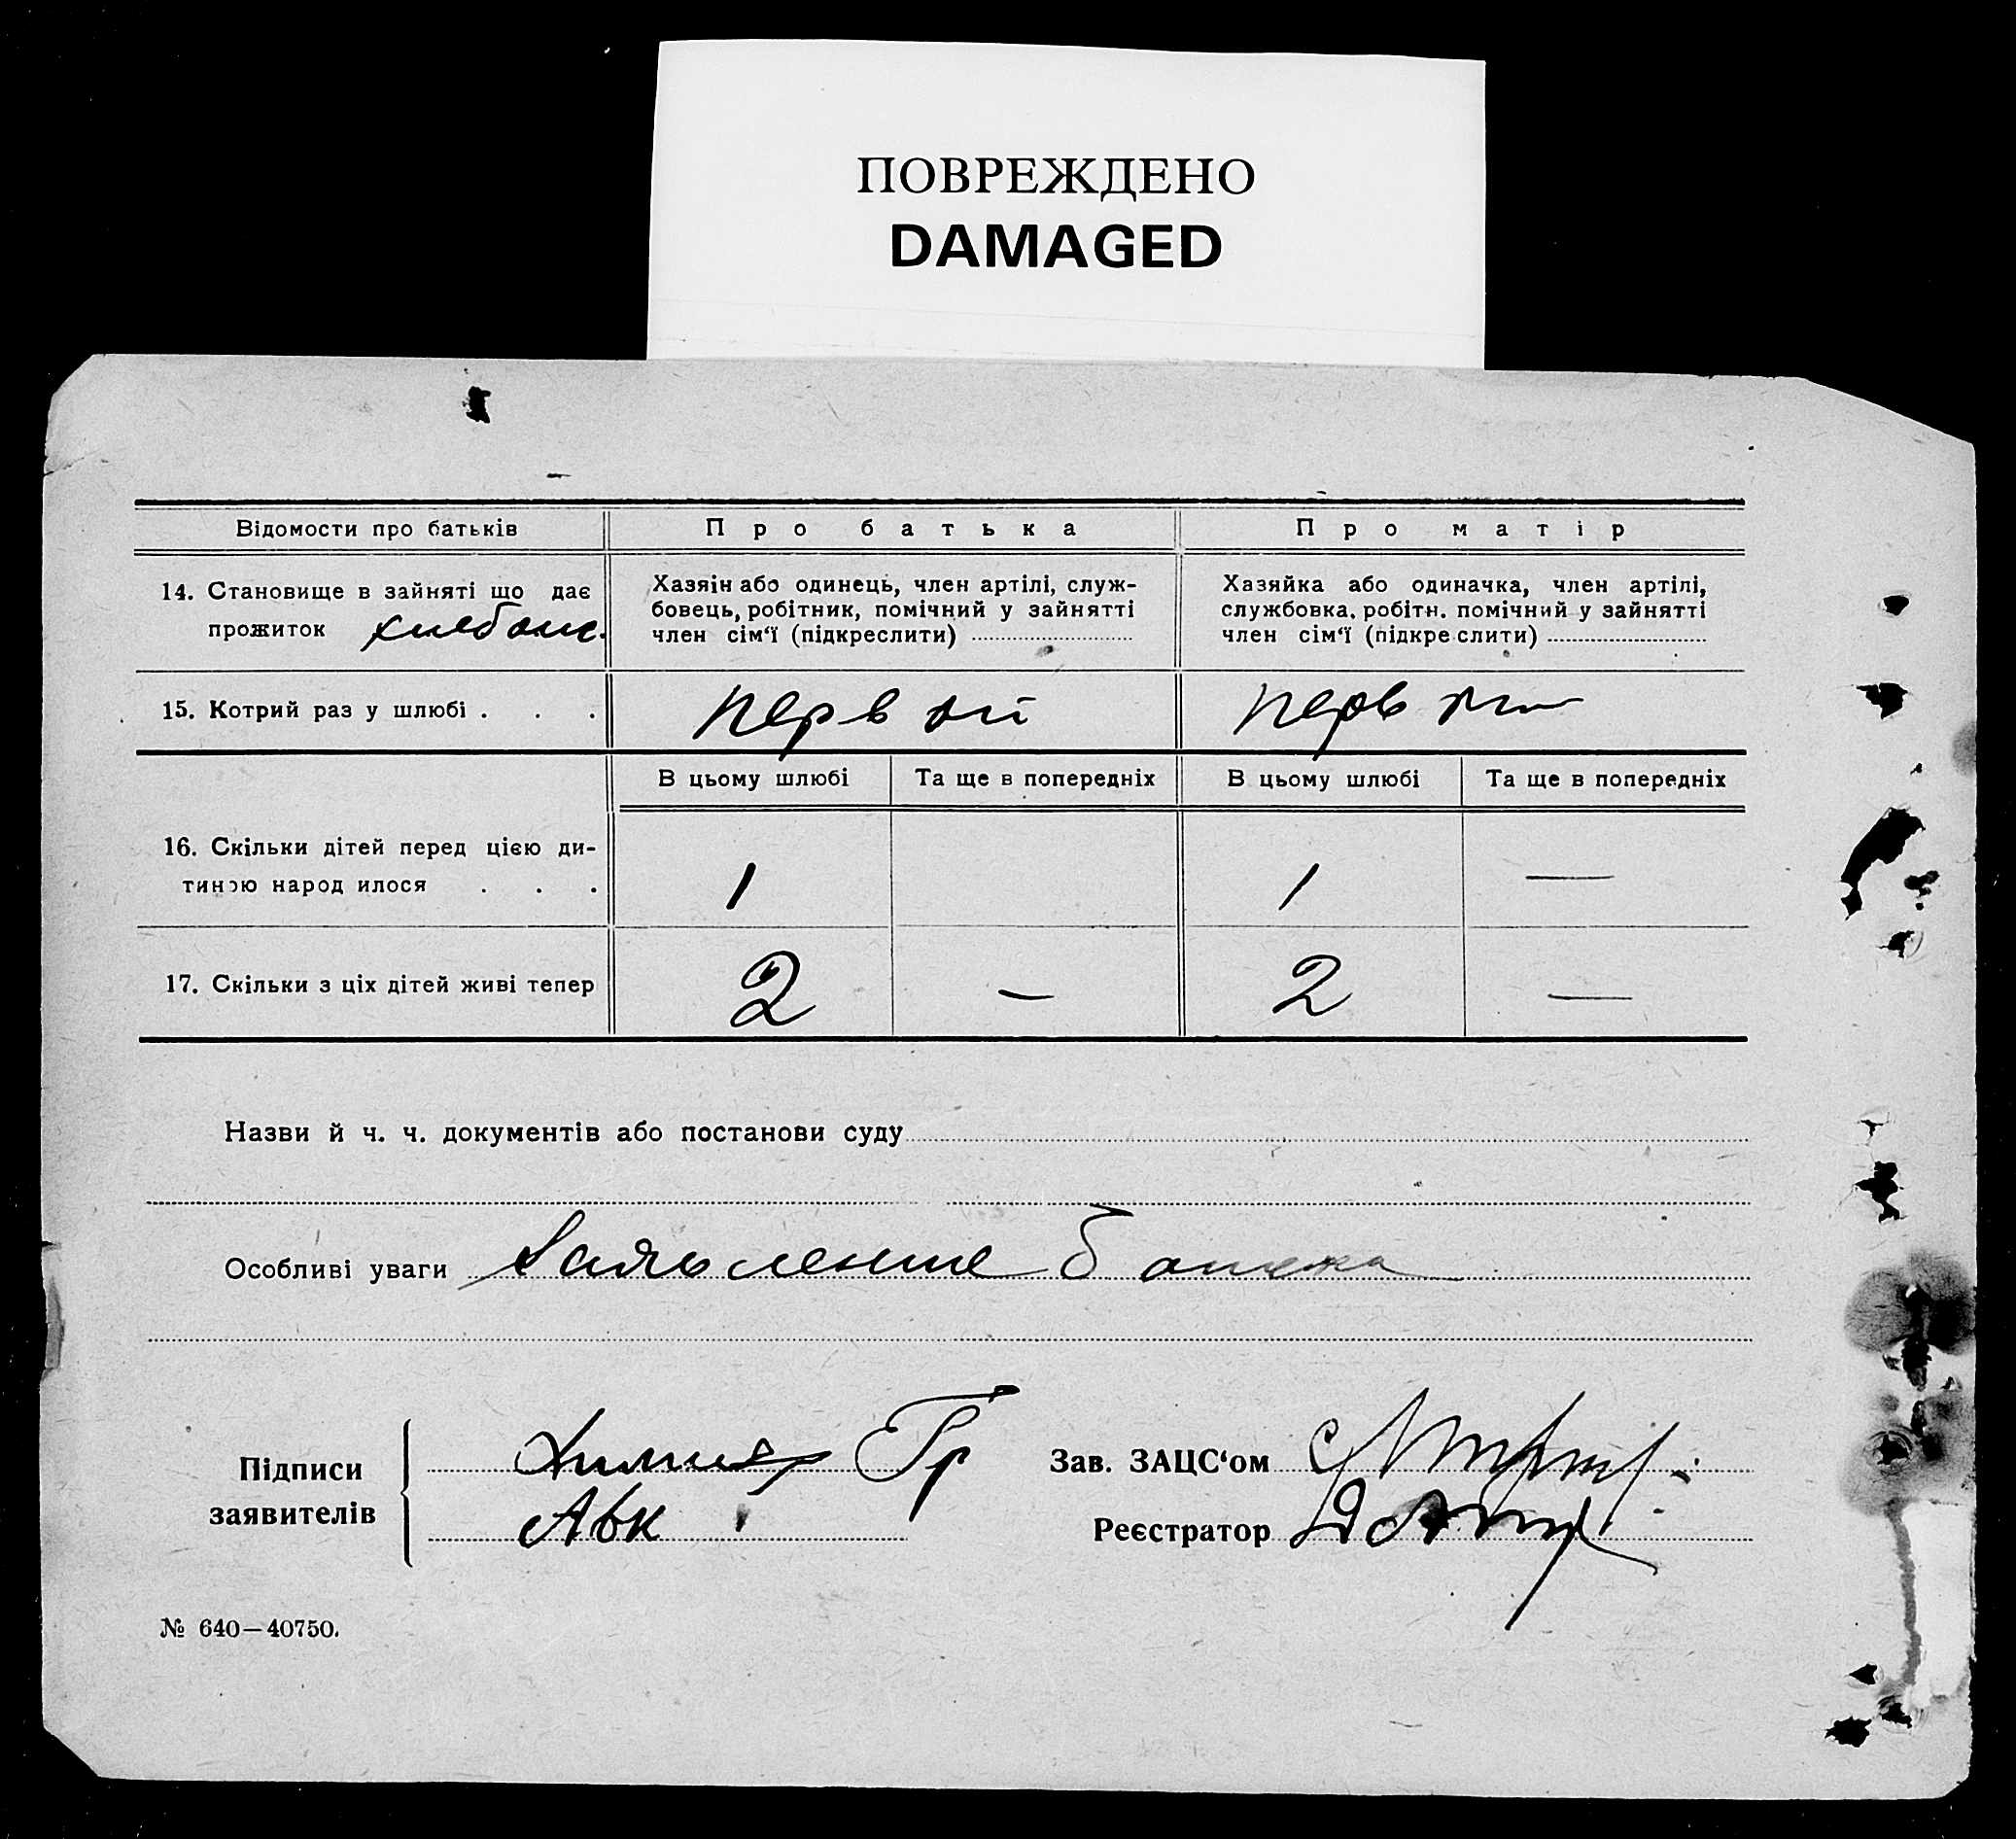 ПОВРЕЖДЕНО
DAMAGED
Відомости про батьків
Про батька
Про матір
14. Становище в зайняті що дає
прожиток
Хазяін або одинець, член артілі, служ-
бовець, робітник, помічний у зайнятті
член сім‘ї (підкреслити)
Хазяйка або одиначка, член артілі,
службовка, робітн. помічний у зайнятті
член сім‘ї (підкреслити)
15. Котрий раз у шлюбі . . .
первый
В цьому шлюбі
Та ще в попередніх
В цьому шлюбі
Та ще в попередніх
16. Скільки дітей перед цією ди-
тиною народилося . . .
1
1
—
17. Скільки з ціх дітей живі тепер
2
—
2
—
Назви й ч. ч. документів або постанови суду
Особливі уваги Заявление батька
Підписи
заявителів
Гр
Авк
Зав. ЗАЦС‘ом
Реєстратор
№ 640—40750.